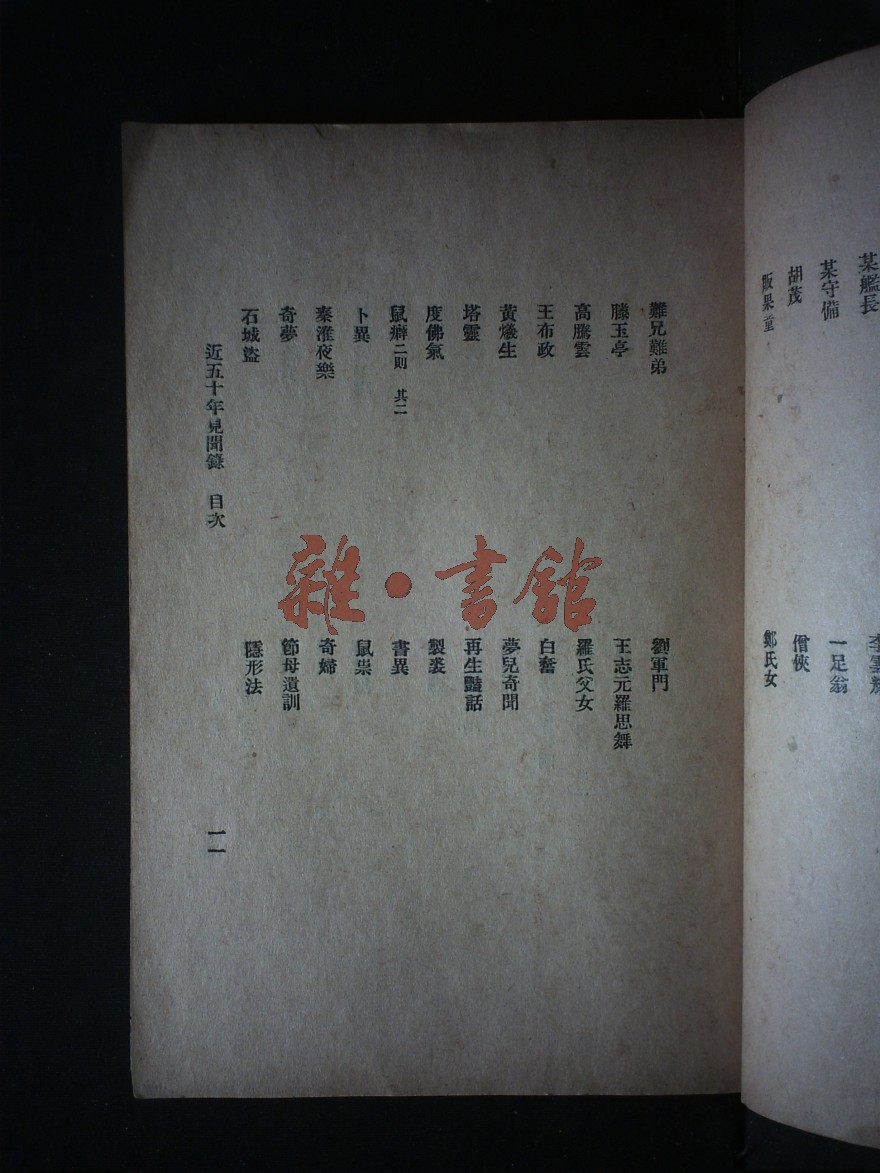 某艦長
李雲
某守備
一足翁
胡茂
僧俠
販果童
鄭氏女
難兄難弟
劉軍門
滕玉亭
王志元羅思舞
高騰雲
羅氏父女
王布政
白奮
黃爔生
夢兒奇聞
塔靈
再生豔話
度佛氣
製裘
鼠癖二則 其二
書異
卜異
鼠祟
秦淮夜樂
奇婦
奇夢
節母遺訓
石城盜
隱形法
近五十年見聞錄 目次
一一
雜・書館